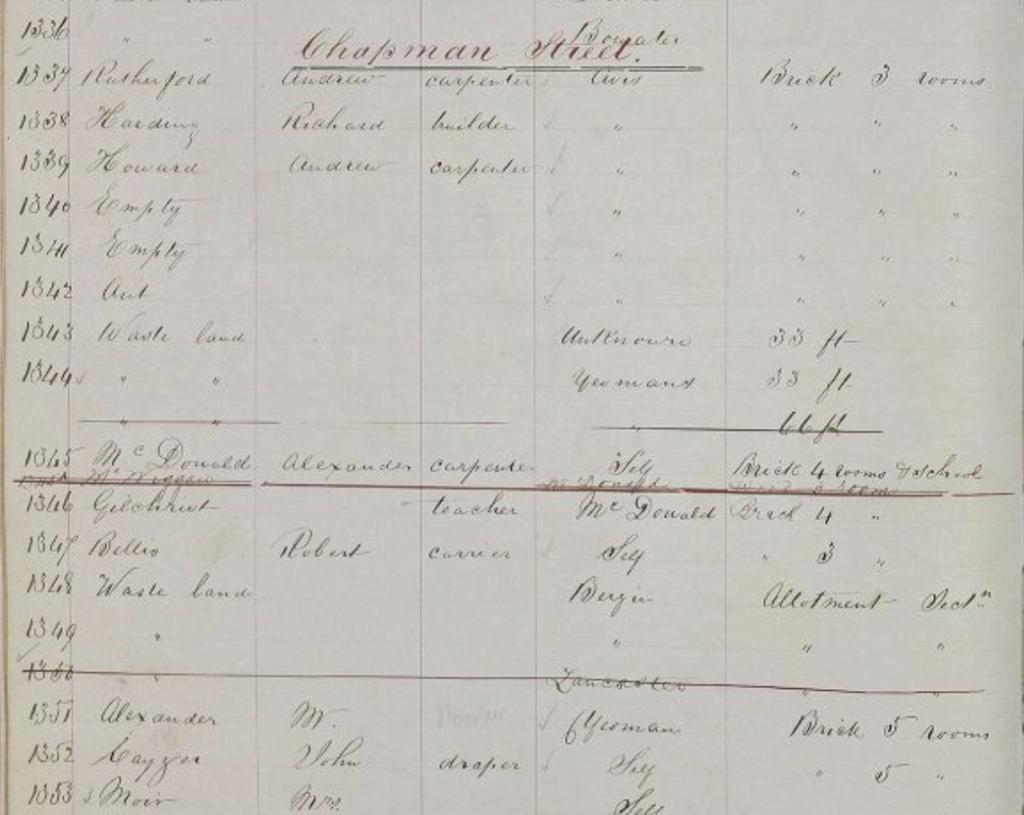 1336 " " Bowater
Chapman Street.
1337 Rutherford Andrew carpenter Avis Brick 3 rooms
1338 Harding Richard builder " " " "
1339 Howard Andrew carpenter " " " "
1340 Empty " " " "
1341 Empty " " " "
1342 Aut " " " "
1343 Waste land Unknown 33 ft
1344 " " Yeomans 33 ft
" " " 66 ft
1345 Mc Donald Alexander carpenter Self Brick 4 rooms & school
Mc Donald room
1346 Gilchrist teacher Mc Donald Brick 4 "
1347 Bellis Robert carrier Self " 3 "
1348 Waste land Bergin Allotment Sectn
1349 " " " "
1350 " Lancaster " "
1351 Alexander W. Yeoman Brick 5 rooms
1352 Cayzer John draper Self " 5 "
1353 Moir Mrs. Self